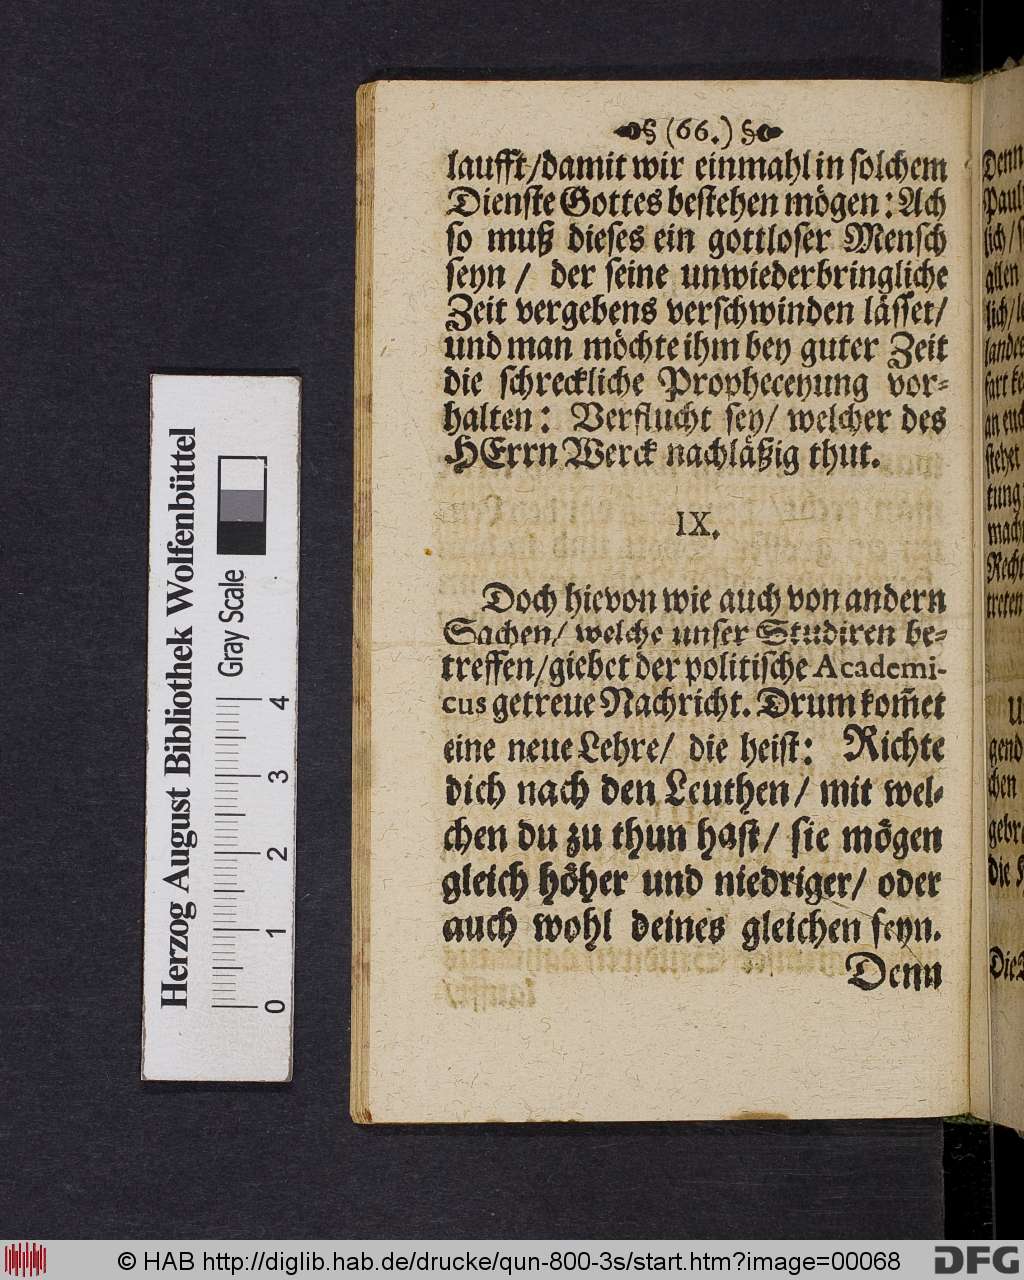 § (66.) §
laufft/damit wir einmahl in solchem
Dienste Gottes bestehen mögen: Ach
so muß dieses ein gottloser Mensch
seyn / der seine unwiederbringliche
Zeit vergebens verschwinden lässet/
und man möchte ihm bey guter Zeit
die schreckliche Propheceyung vor-
halten: Verflucht sey/ welcher des
HErrn Werck nachläßig thut.
IX.
Doch hievon wie auch von andern
Sachen/ welche unser Studiren be-
treffen/giebet der politische Academi-
cus getreue Nachricht. Drum kom̅et
eine neue Lehre/ die heist: Richte
dich nach den Leuthen/ mit wel-
chen du zu thun hast/ sie mögen
gleich höher und niedriger/ oder
auch wohl deines gleichen seyn.
Denn
Denn
Paul
sich/
allen
lich/
landes
an euch
stehet
tung
mach
Recht
treten
gend
chen
gebr
die
Die
Herzog August Bibliothek Wolfenbüttel
Gray Scale
0 1 2 3 4
© HAB http://diglib.hab.de/drucke/qun-800-3s/start.htm?image=00068
DFG